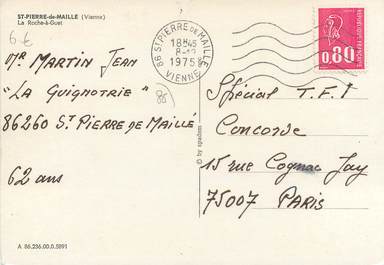 ST-PIERRE-de-MAILLE (Vienne)
La Roche-à-Guet
6 €
Mr MARTIN Jean
"LA GUIGNOTRIE"
86260 ST PIERRE DE MAILLÉ
62 ans
86 ST PIERRE DE MAILLE
18H45
1975
VIENNE
86
0,80
Spécial T.F.1
Concorde
15 rue Cognac Jay
75007 PARIS
© by spadem
A 86.236.00.0.5091